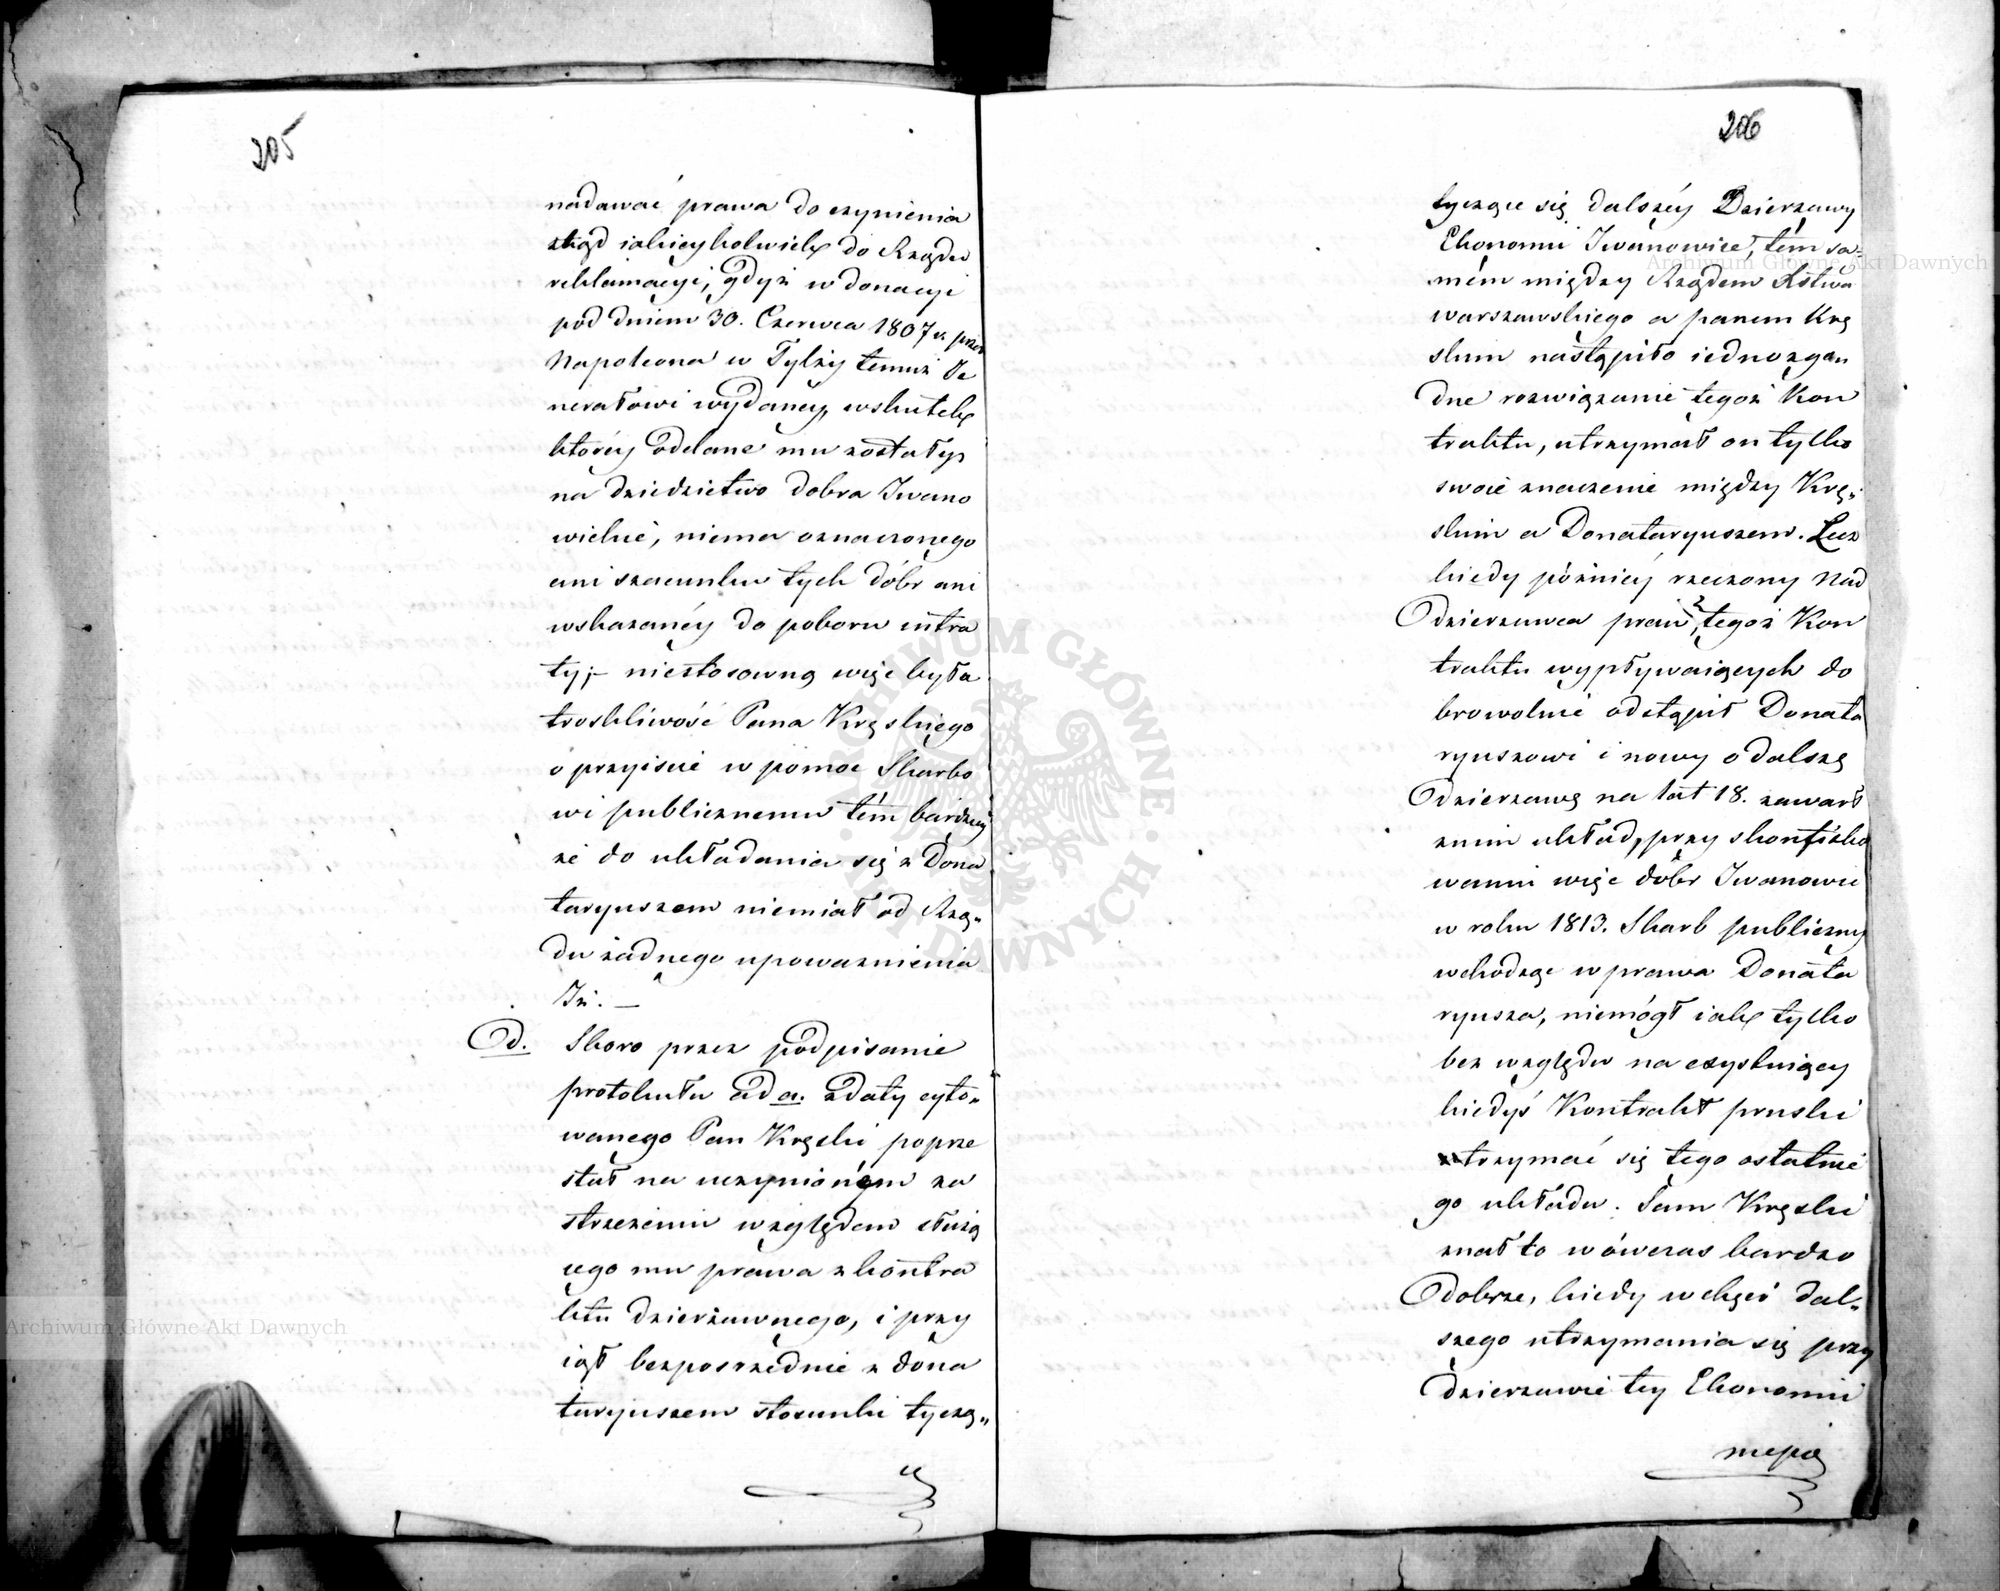 205
nadawać prawa do czynienia
ztąd iakieykolwiek do Rządu
reklamacyi, gdyż w donacyi
pod dniem 30. Czerwca 1807 r. przez
Napoleona w Tylży temuż Je
nerałowi wydanéy, wskutek
któréy oddane mu zostały
na dziedzictwo dobra Iwano
wickie, niema oznaczonego
ani szacunku tych dóbr ani
wskazanéy do poboru intra
ty;- niestosowną więc była
troskliwość Pana Kręskiego
o przyiście w pomoc Skarbo
wi publicznemu tém bardziey
że do układania się z Dona
taryuszem niemiał od Rzą-
du żadnego upoważnienia
Iż. —
d. Skoro przez podpisanie
protokułu ad a. zdaty cyto-
wanego Pan Kręski poprze
stał na uczynioném za
strzeżeniu względem służą
cego mu prawa z kontra
ktu dzierżawnego, i przy
iął bezposrzednie z dona
taryuszem stosunki tyczą-
206
tyczące się dalszéy Dzierzawy
Ekonomii Iwanowice, tém sa-
mém między Rządem Xstwa
warszawskiego a panem Krę
skim nastąpiło iednozgo
dne rozwiązanie tegoż Kon
traktu, utrzymał on tylko
swoie znaczenie między Krę-
skim a Donataryuszem. Lecz
kiedy późniéy rzeczony Nad
dzierzawca praw z tegoż Kon
traktu wypływaiących do
browolnie odstąpił Donata
ryuszowi i nowy o dalszą
dzierzawę na lat 18. zawarł
znim układ, przy skonfisko
waniu więc dóbr Iwanowic
w roku 1813. Skarb publiczny
wchodząc w prawa Donata
ryusza, niemógł iak tylko
bez względu na exystuiący
kiedyś Kontrakt pruski
trzymać się tego ostatnie
go układu. Sam Kręski
znał to wówczas bardzo
dobrze, kiedy w chęci dal-
szego utrzymania się przy
dzierzawie tey Ekonomii